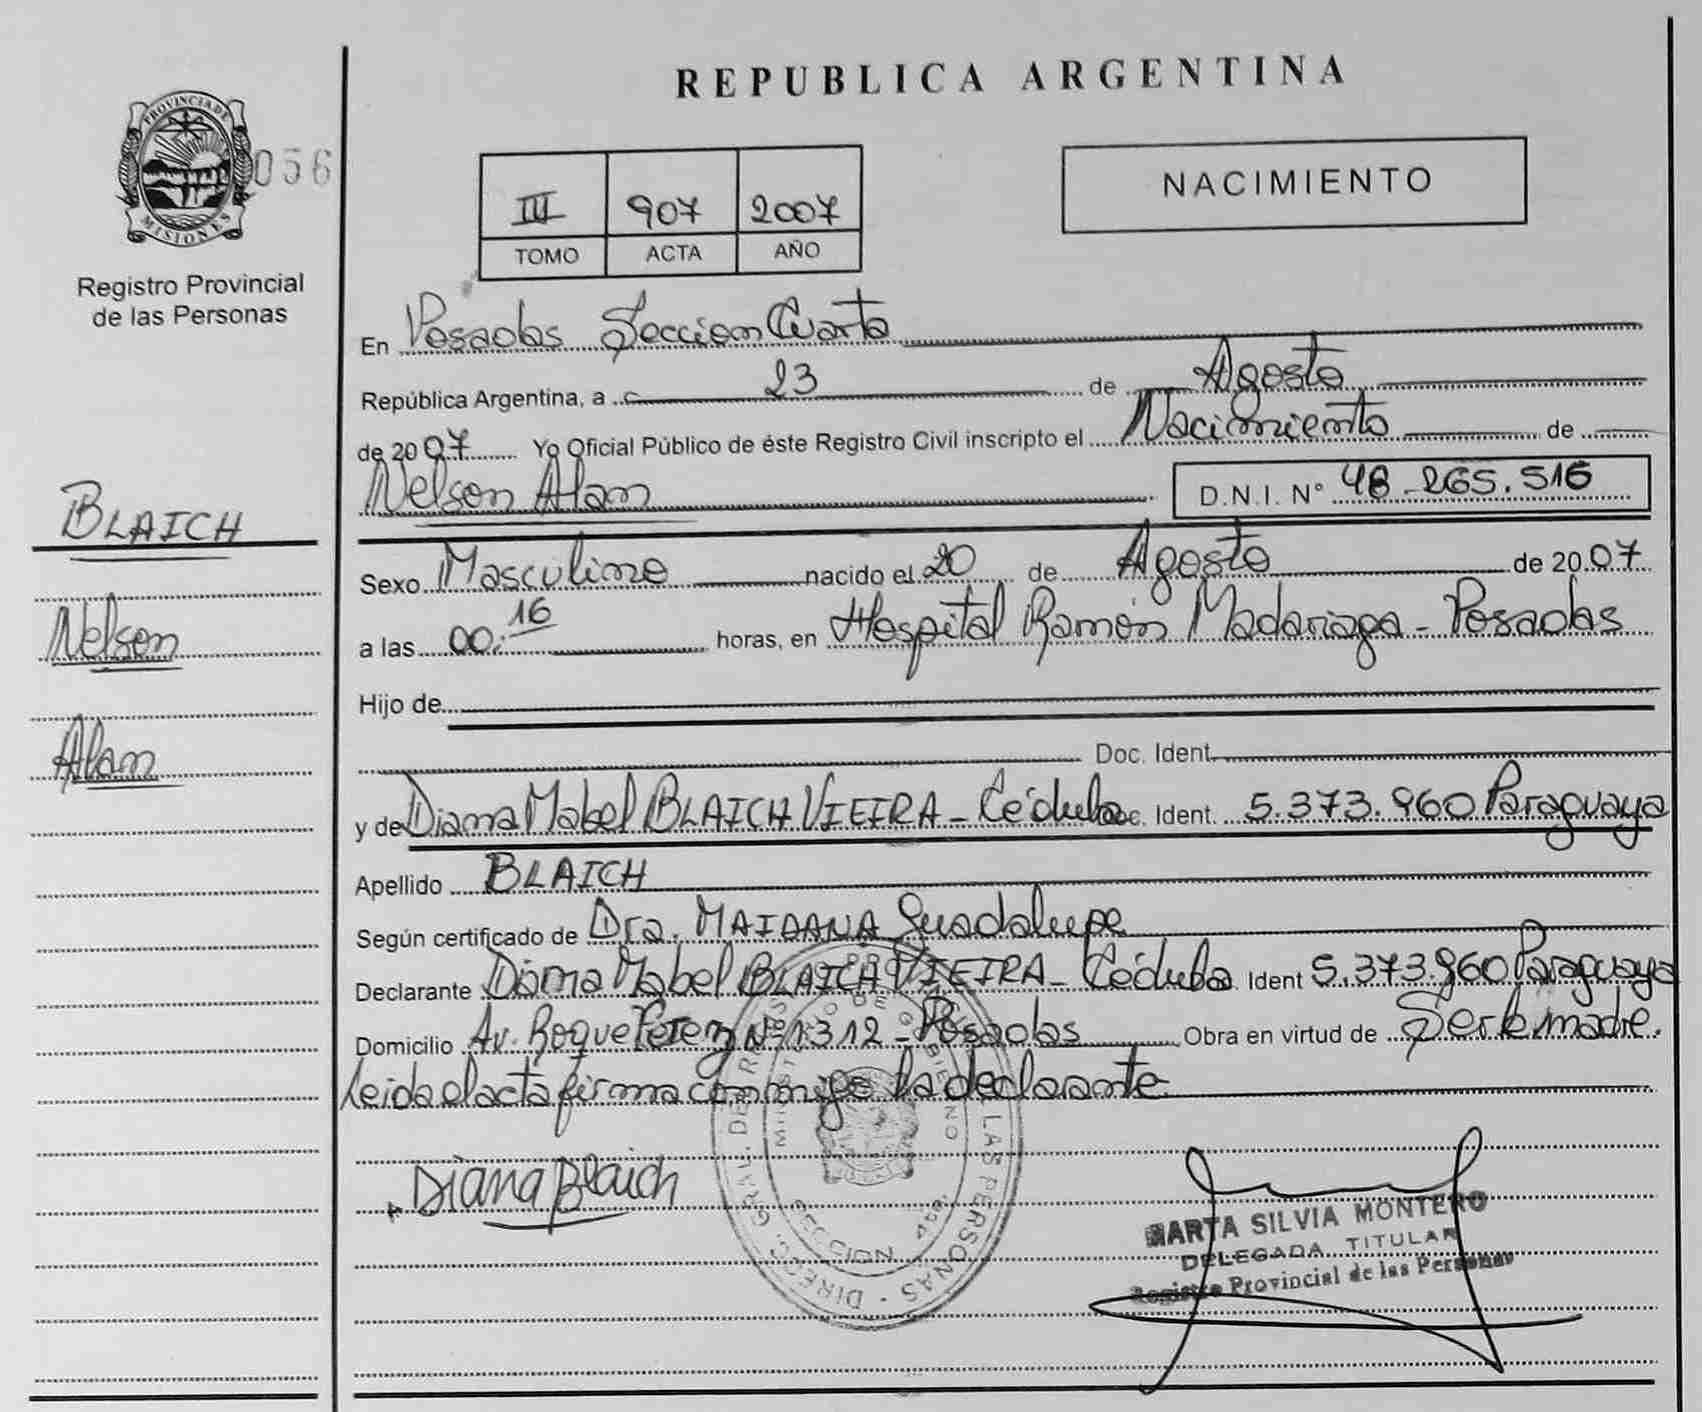 REPUBLICA ARGENTINA
PROVINCIA DE
MISIONES
056
Registro Provincial
de las Personas
III 907 2007
TOMO ACTA AÑO
NACIMIENTO
BLAICH
Nelson
Alan
En Posadas Seccion Cuarta
República Argentina, a 23 de Agosto
de 2007 Yo Oficial Público de éste Registro Civil inscripto el Nacimiento de
Nelson Alan D.N.I. N° 48.265.516
Sexo Masculino nacido el 20 de Agosto de 2007
a las 00:16 horas, en Hospital Ramón Madariaga - Posadas
Hijo de
Doc. Ident.
y de Diana Mabel BLAICH VIEIRA - Cédula Doc. Ident. 5.373.960 Paraguaya
Apellido BLAICH
Según certificado de Dra. MAIDANA Guadalupe
Declarante Diana Mabel BLAICH VIEIRA - Cédula Ident 5.373.960 Paraguaya
Domicilio Av. Roque Perez Nº 1312 - Posadas Obra en virtud de Ser la madre.
Leida el acta firma conmigo la declarante
Diana Blaich
MARTA SILVIA MONTERO
DELEGADA TITULAR
Registro Provincial de las Personas